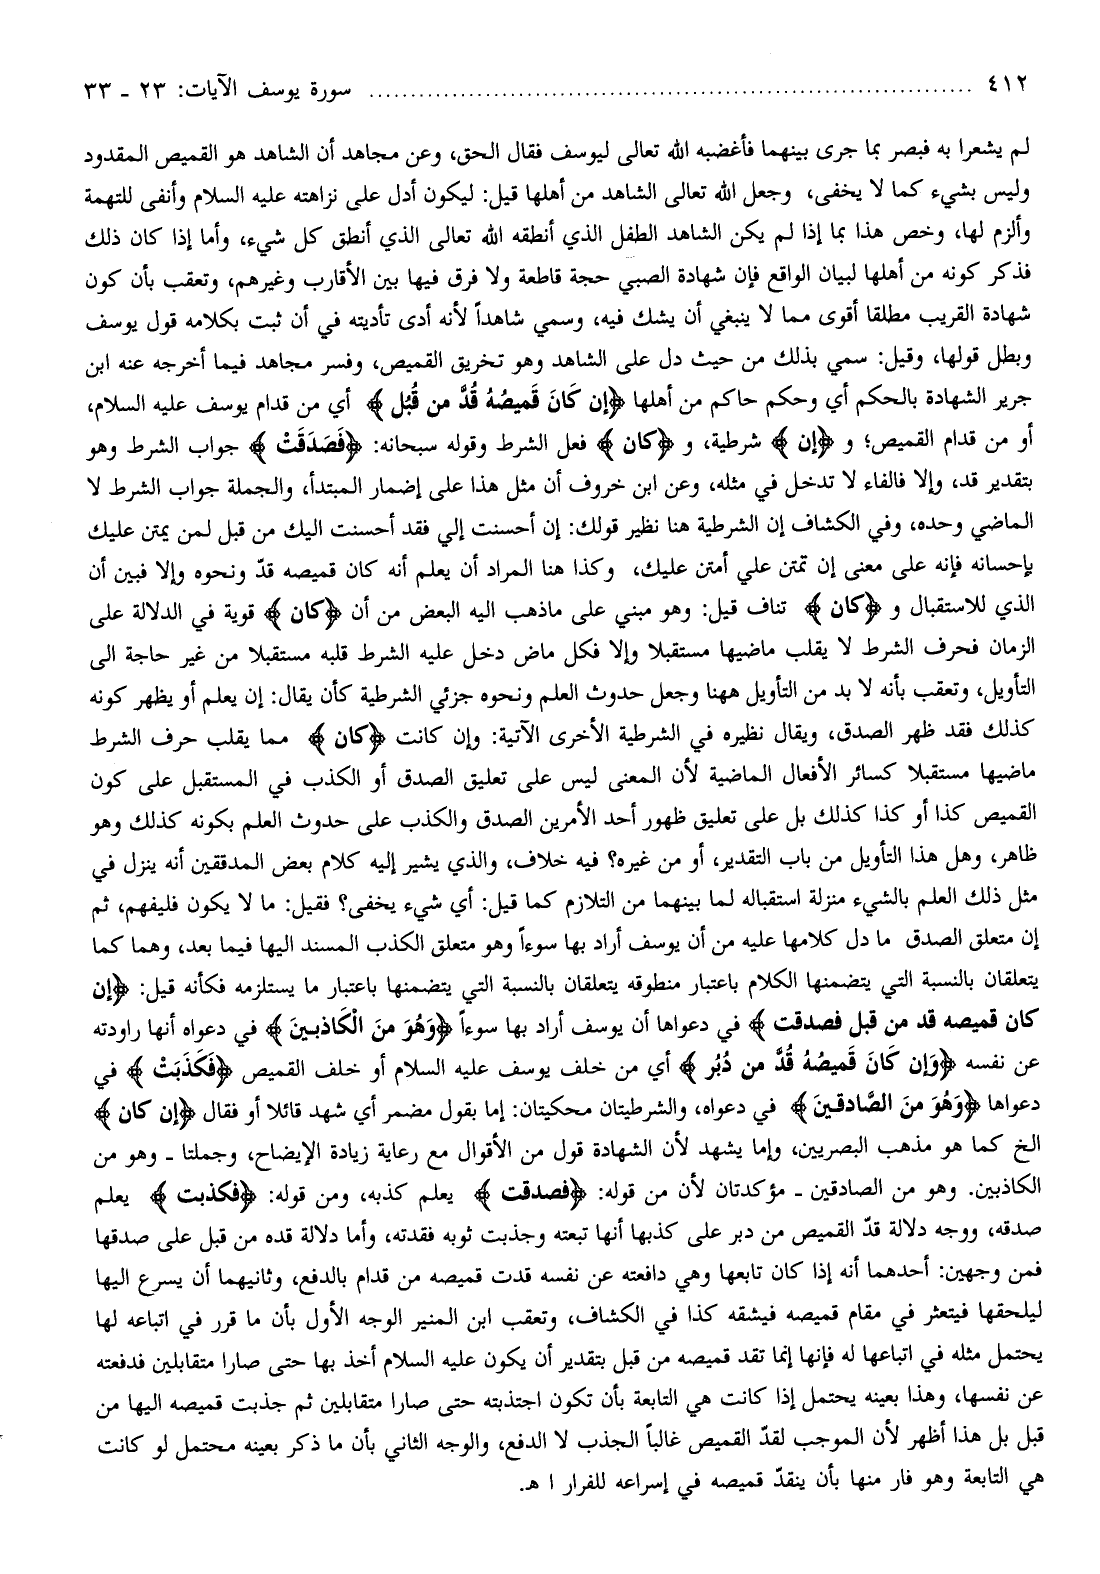 ٤١٢ ........................................................................ سورة يوسف الآيات: ٢٣ ـ ٣٣
لم يشعرا به فبصر بما جرى بينهما فأغضبه الله تعالى ليوسف فقال الحق، وعن مجاهد أن الشاهد هو القميص المقدود
وليس بشيء كما لا يخفى، وجعل الله تعالى الشاهد من أهلها قيل: ليكون أدل على نزاهته عليه السلام وأنفى للتهمة
وألزم لها، وخص هذا بما إذا لم يكن الشاهد الطفل الذي أنطقه الله تعالى الذي أنطق كل شيء، وأما إذا كان ذلك
فذكر كونه من أهلها لبيان الواقع فإن شهادة الصبي حجة قاطعة ولا فرق فيها بين الأقارب وغيرهم، وتعقب بأن كون
شهادة القريب مطلقا أقوى مما لا ينبغي أن يشك فيه، وسمي شاهداً لأنه أدى تأديته في أن ثبت بكلامه قول يوسف
وبطل قولها، وقيل: سمي بذلك من حيث دل على الشاهد وهو تخريق القميص، وفسر مجاهد فيما أخرجه عنه ابن
جرير الشهادة بالحكم أي وحكم حاكم من أهلها ﴿إن كَانَ قَميصُهُ قُدَّ من قُبُل﴾ أي من قدام يوسف عليه السلام،
أو من قدام القميص؛ و ﴿إن﴾ شرطية، و ﴿كان﴾ فعل الشرط وقوله سبحانه: ﴿فَصَدَقَتْ﴾ جواب الشرط وهو
بتقدير قد، وإلا فالفاء لا تدخل في مثله، وعن ابن خروف أن مثل هذا على إضمار المبتدأ، والجملة جواب الشرط لا
الماضي وحده، وفي الكشاف إن الشرطية هنا نظير قولك: إن أحسنت إلي فقد أحسنت اليك من قبل لمن يمتن عليك
بإحسانه فإنه على معنى إن تمتن علي أمتن عليك، وكذا هنا المراد أن يعلم أنه كان قميصه قدّ ونحوه وإلا فبين أن
الذي للاستقبال و ﴿كان﴾ تناف قيل: وهو مبني على ماذهب اليه البعض من أن ﴿كان﴾ قوية في الدلالة على
الزمان فحرف الشرط لا يقلب ماضيها مستقبلا وإلا فكل ماض دخل عليه الشرط قلبه مستقبلا من غير حاجة الى
التأويل، وتعقب بأنه لا بد من التأويل ههنا وجعل حدوث العلم ونحوه جزئي الشرطية كأن يقال: إن يعلم أو يظهر كونه
كذلك فقد ظهر الصدق، ويقال نظيره في الشرطية الأخرى الآتية: وإن كانت ﴿كان﴾ مما يقلب حرف الشرط
ماضيها مستقبلا كسائر الأفعال الماضية لأن المعنى ليس على تعليق الصدق أو الكذب في المستقبل على كون
القميص كذا أو كذا كذلك بل على تعليق ظهور أحد الأمرين الصدق والكذب على حدوث العلم بكونه كذلك وهو
ظاهر، وهل هذا التأويل من باب التقدير، أو من غيره؟ فيه خلاف، والذي يشير إليه كلام بعض المدققين أنه ينزل في
مثل ذلك العلم بالشيء منزلة استقباله لما بينهما من التلازم كما قيل: أي شيء يخفى؟ فقيل: ما لا يكون فليفهم، ثم
إن متعلق الصدق ما دل كلامها عليه من أن يوسف أراد بها سوءاً وهو متعلق الكذب المسند اليها فيما بعد، وهما كما
يتعلقان بالنسبة التي يتضمنها الكلام باعتبار منطوقه يتعلقان بالنسبة التي يتضمنها باعتبار ما يستلزمه فكأنه قيل: ﴿إن
كان قميصه قد من قبل فصدقت﴾ في دعواها أن يوسف أراد بها سوءاً ﴿وَهُوَ منَ الْكَاذبينَ﴾ في دعواه أنها راودته
عن نفسه ﴿وَإن كَانَ قَميصُهُ قُدَّ من دُبُر﴾ أي من خلف يوسف عليه السلام أو خلف القميص ﴿فَكَذَبَتْ﴾ في
دعواها ﴿وَهُوَ منَ الصَّادقينَ﴾ في دعواه، والشرطيتان محكيتان: إما بقول مضمر أي شهد قائلا أو فقال ﴿إن كان﴾
الخ كما هو مذهب البصريين، وإما يشهد لأن الشهادة قول من الأقوال مع رعاية زيادة الإيضاح، وجملتا ـ وهو من
الكاذبين. وهو من الصادقين ـ مؤكدتان لأن من قوله: ﴿فصدقت﴾ يعلم كذبه، ومن قوله: ﴿فكذبت﴾ يعلم
صدقه، ووجه دلالة قدّ القميص من دبر على كذبها أنها تبعته وجذبت ثوبه فقدته، وأما دلالة قده من قبل على صدقها
فمن وجهين: أحدهما أنه إذا كان تابعها وهي دافعته عن نفسه قدت قميصه من قدام بالدفع، وثانيهما أن يسرع اليها
ليلحقها فيتعثر في مقام قميصه فيشقه كذا في الكشاف، وتعقب ابن المنير الوجه الأول بأن ما قرر في اتباعه لها
يحتمل مثله في اتباعها له فإنها إنما تقد قميصه من قبل بتقدير أن يكون عليه السلام أخذ بها حتى صارا متقابلين فدفعته
عن نفسها، وهذا بعينه يحتمل إذا كانت هي التابعة بأن تكون اجتذبته حتى صارا متقابلين ثم جذبت قميصه اليها من
قبل بل هذا أظهر لأن الموجب لقدّ القميص غالباً الجذب لا الدفع، والوجه الثاني بأن ما ذكر بعينه محتمل لو كانت
هي التابعة وهو فار منها بأن ينقدّ قميصه في إسراعه للفرار ا هـ.